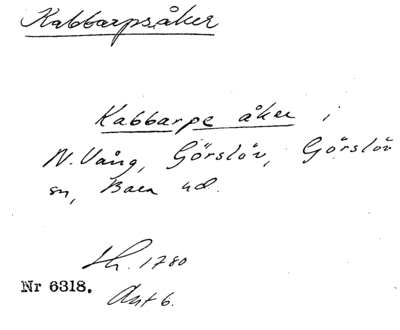 Kabbarpsåker
Kabbarps åker i
N. Vång, Görslöv, Görslöv
sn, Bara hd.
Sk. 1780
Nr 6318.
Akt 6.